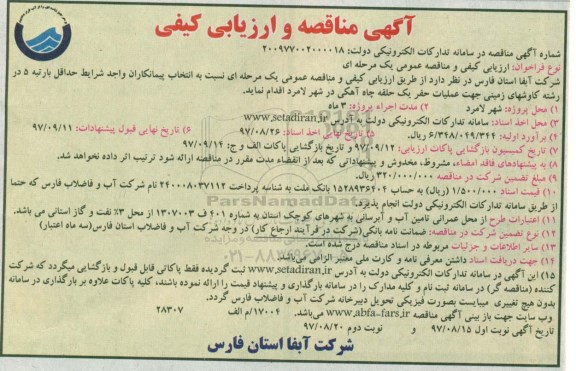 آگهی مناقصه و ارزیابی کیفی
شماره آگهی مناقصه در سامانه تدارکات الکترونیکی دولت: ۲۰۰۹۷۷۰۰۲۰۰۰۰۰۱۸
نوع فراخوان: ارزیابی کیفی و مناقصه عمومی یک مرحله ای
شرکت آبفا استان فارس در نظر دارد از طریق ارزیابی کیفی و مناقصه عمومی یک مرحله ای نسبت به انتخاب پیمانکاران واجد شرایط حداقل بارتبه ۵ در
رشته کاوشهای زمینی جهت عملیات حفر یک حلقه چاه آهکی در شهر لامرد اقدام نماید.
۱) محل پروژه: شهر لامرد ۲) مدت اجراء پروژه: ۳ ماه
۳) محل اخذ اسناد: سامانه تدارکات الکترونیکی دولت به آدرس www.setadiran.ir
۴) برآورد اولیه: ۶/۳۴۸/۰۴۹/۳۴۴ ریال ۵) تاریخ نهایی اخذ اسناد: ۹۷/۰۸/۲۶ ۶) تاریخ نهایی قبول پیشنهادات: ۹۷/۰۹/۱۱
۷) تاریخ کمیسیون بازگشایی پاکات ارزیابی: ۹۷/۰۹/۱۲ و تاریخ بازگشایی پاکات الف و ج: ۹۷/۰۹/۱۴
۸) به پیشنهادهای فاقد امضاء، مشروط، مخدوش و پیشنهاداتی که بعد از انقضاء مدت مقرر در مناقصه ارائه شود ترتیب اثر داده نخواهد شد.
۹) مبلغ تضمین شرکت در مناقصه: ۳۲۰/۰۰۰/۰۰۰ ریال
۱۰) قیمت اسناد ۱/۵۰۰/۰۰۰ (ریال) به حساب ۱۵۲۸۹۳۶۴۰۴ بانک ملت به شناسه پرداخت ۲۴۰۰۰۸۰۳۷۱۱۲ نام شرکت آب و فاضلاب فارس که حتما
از طریق سامانه تدارکات الکترونیکی دولت انجام پذیرد.
۱۱) اعتبارات طرح: از محل عمرانی تامین آب و آبرسانی به شهرهای کوچک استان به شماره ۴۰۱ ف ۱۳۰۷۰۰۳ از محل ۳٪ نفت و گاز استانی می باشد.
۱۲) نوع تضمین شرکت در مناقصه: ضمانت نامه بانکی(شرکت در فرآیند ارجاع کار) در وجه شرکت آب و فاضلاب استان فارس(سه ماه اعتبار)
۱۳) سایر اطلاعات و جزئیات مربوطه در اسناد مناقصه درج شده است.
۱۴) جهت دریافت اسناد داشتن معرفی نامه و کارت ملی معتبر الزامی می باشد.
۱۵) این آگهی در سامانه تدارکات الکترونیکی دولت به آدرس www.setadiran.ir ثبت گردیده فقط پاکاتی قابل قبول و بازگشایی میگردد که شرکت
کننده (مناقصه گر) در سامانه ثبت نام و کلیه مدارک را در سامانه بارگذاری و پیشنهاد قیمت را ارائه نموده باشند، کلیه پاکات علاوه بر بارگذاری در سامانه
بدون هیچ تغییری میبایست بصورت فیزیکی تحویل دبیرخانه شرکت آب و فاضلاب فارس گردد.
وب سایت جهت باز بینی آگهی مناقصه www.abfa-fars.ir می باشد. ۱۷۰۰۴/م الف ۲۸۳۰۷
تاریخ آگهی نوبت اول ۹۷/۰۸/۱۵ و نوبت دوم ۹۷/۰۸/۲۰
شرکت آبفا استان فارس
ParsNamadData